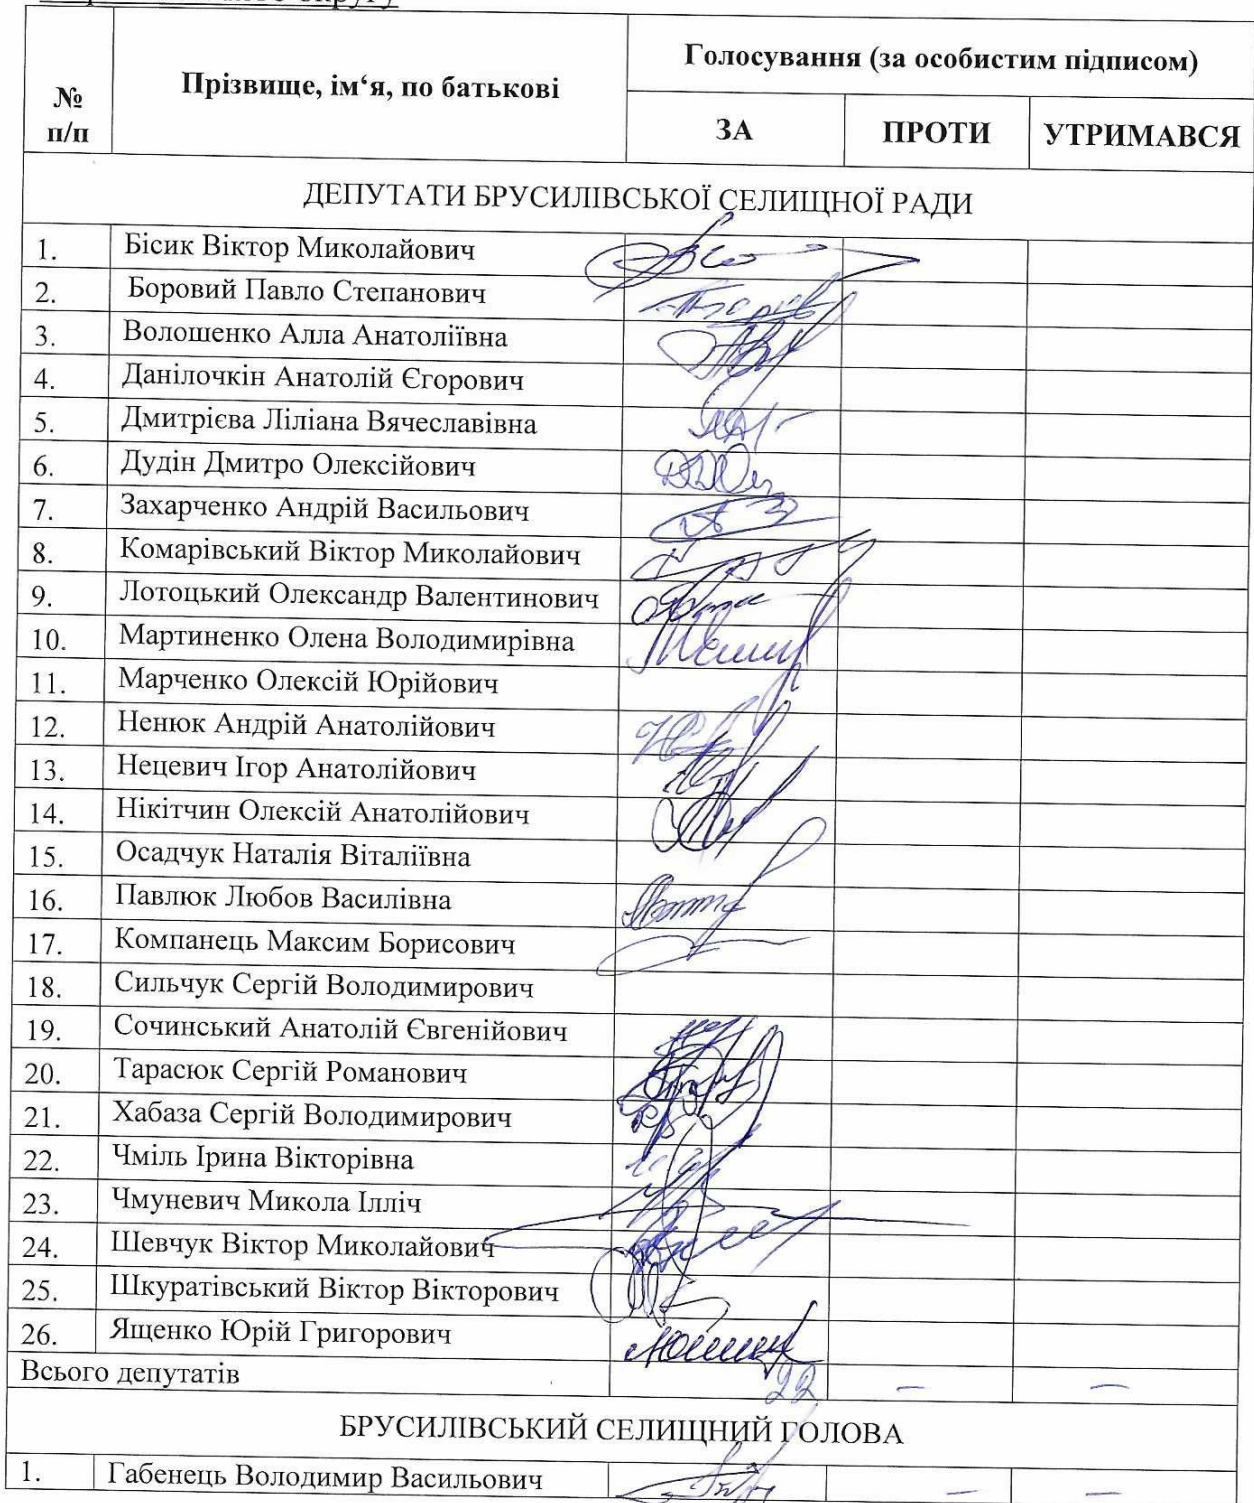 округу
№ п/п
Прізвище, ім‘я, по батькові
Голосування (за особистим підписом)
ЗА
ПРОТИ
УТРИМАВСЯ
ДЕПУТАТИ БРУСИЛІВСЬКОЇ СЕЛИЩНОЇ РАДИ
1. Бісик Віктор Миколайович
2. Боровий Павло Степанович
3. Волошенко Алла Анатоліївна
4. Данілочкін Анатолій Єгорович
5. Дмитрієва Ліліана Вячеславівна
6. Дудін Дмитро Олексійович
7. Захарченко Андрій Васильович
8. Комарівський Віктор Миколайович
9. Лотоцький Олександр Валентинович
10. Мартиненко Олена Володимирівна
11. Марченко Олексій Юрійович
12. Ненюк Андрій Анатолійович
13. Нецевич Ігор Анатолійович
14. Нікітчин Олексій Анатолійович
15. Осадчук Наталія Віталіївна
16. Павлюк Любов Василівна
17. Компанець Максим Борисович
18. Сильчук Сергій Володимирович
19. Сочинський Анатолій Євгенійович
20. Тарасюк Сергій Романович
21. Хабаза Сергій Володимирович
22. Чміль Ірина Вікторівна
23. Чмуневич Микола Ілліч
24. Шевчук Віктор Миколайович
25. Шкуратівський Віктор Вікторович
26. Ященко Юрій Григорович
Всього депутатів 22 – –
БРУСИЛІВСЬКИЙ СЕЛИЩНИЙ ГОЛОВА
1. Габенець Володимир Васильович – –